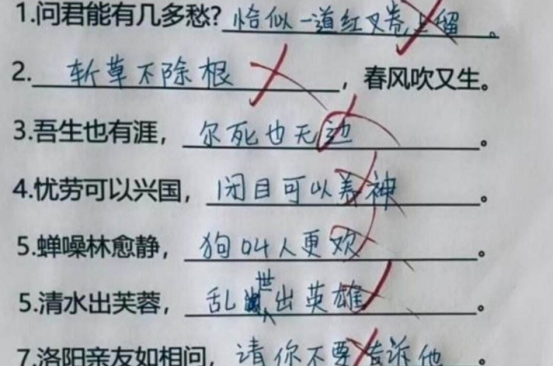 1.问君能有几多愁?恰似一道红叉卷上留。
2.斩草不除根,春风吹又生。
3.吾生也有涯,尔死也无边。
4.忧劳可以兴国,闭目可以养神。
5.蝉噪林愈静,狗叫人更欢。
5.清水出芙蓉,乱世出英雄。
7.洛阳亲友如相问,请你不要告诉他。